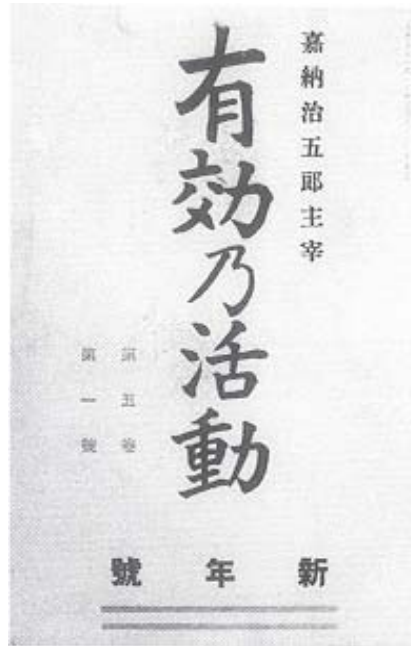 嘉納治五郎主宰
有効乃活動
第五巻
第一號
新年號